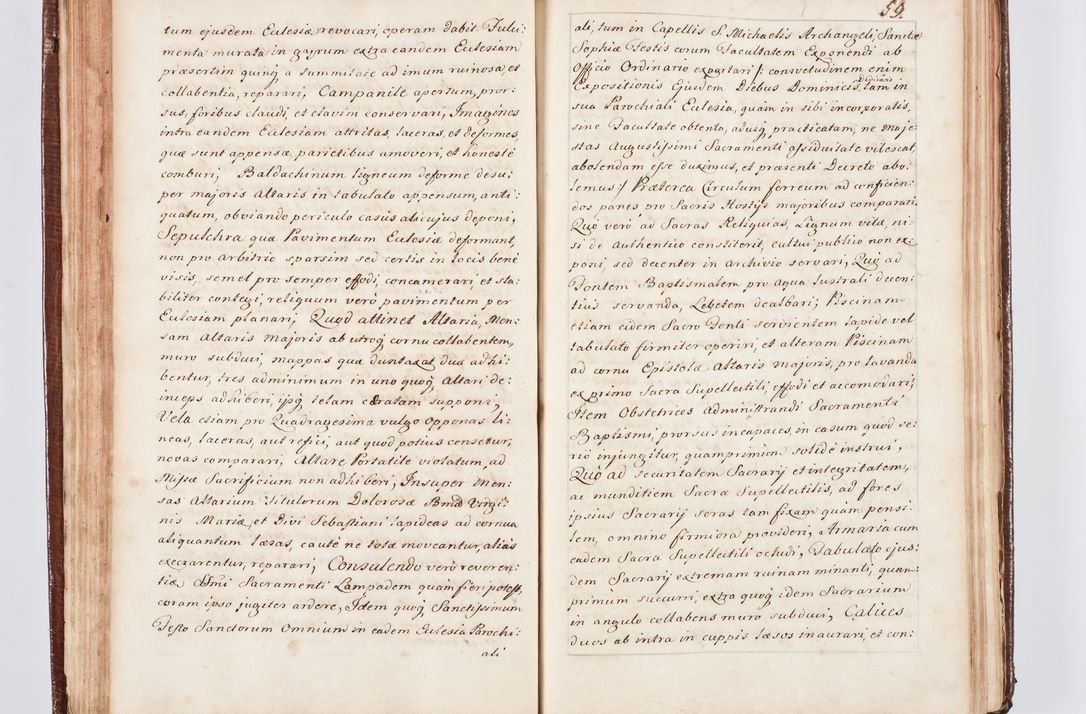 tum ejusdem Eclesiæ revocari, operam dabit. Fulci:
menta murata in gyrum extra eandem Eclesiam
præsertim quinq a summitate ad imum ruinosa, et
collabentia, reparari, Campanile apertum, pror:
sus, foribus claudi, et clavim conservari, Imagines
intra eandem Eclesiam attritas, laceras, et deformes,
quæ sunt appensæ, parietibus amoveri, et honestè
comburi; Baldachinum ligneum deforme desu:
per majoris Altaris in tabulato appensum, anti:
quatum, obviando periculo casùs alicujus deponi,
Sepulchra quæ Pavimentum Eclesiæ deformant,
non pro arbitrio sparsim sed certis in locis benè
visis, semel pro semper effodi, concamerari, et sta:
biliter contegi, reliquum verò pavimentum per
Eclesiam planari; Quod attinet Altaria, Men:
sam Altaris Majoris ab utroq cornu collabentem,
muro subduci, mappas quæ duntaxat duæ adhi:
bentur, tres adminimum in uno quoq Altari de:
inceps adhiberi, ijsq telam ceratam supponi
Vela etiam pro Quadragesima vulgo Opponas li:
neas, laceras, aut refici, aut quod potius censetur,
novas comparari, Altare Portatile violatum, ad
Missæ Sacrificium non adhiberi, Insuper Men:
sas Altarium Titulorum Dolorosæ Bmæ Virgi:
nis Mariæ, et Divi Sebastiani lapideas ad cornua
aliquantum læsas, cautè ne totæ moveantur, alias
execrarentur, reparari, Consulendo verò reveren:
tiæ SSmi Sacramenti Lampadem quàm fieri potest,
coram ipso jugiter ardere, Idem quoq Sanctissimum
Festo Sanctorum Omnium in eadem Eclesia Parochi:
ali
59.
ali, tum in Capellis S. Michaelis Archangeli, Sanctæ
Sophiæ Festis eorum Facultatem Exponendi ab
Officio Ordinario exoptari /: consvetudinem enim
Expositionis Ejusdem Diebus Dominicis, tam in
sua Parochiali Eclesia, quàm in sibi incorporatis,
sine Facultate obtenta, adusq practicatam, ne Maje:
stas Augustissimi Sacramenti assiduitate vilescat,
abolendam esse duximus, et præsenti Decreto abo:
lemus :/ Præterea Circulum ferreum ad conficien:
dos panes pro Sacris Hostijs majoribus comparari.
Quò verò ad Sacras Reliquias, Lignum vitæ, ni:
si de authentico constiterit, cultui publico non ex:
poni, sed decenter in archivio servari; Quò ad
Fontem Baptismalem pro aqua lustrali decen:
tius servanda, Lebetem dealbari; Piscinam
etiam eidem Sacro Fonti servientem lapide vel
tabulato firmiter operiri, et alteram Piscinam
ad cornu Epistolæ Altaris Majoris, pro lavanda
ex primo Sacra Supellectili, effodi et accomodari;
Item Obstetrices Administrandi Sacramenti
Baptismi, prorsus incapaces, in casum quòd se:
riò injungitur, quamprimum solidè instrui,
Quò ad securitatem Sacrarij et integritatem,
ac munditiem Sacræ Supellectilis, ad fores
ipsius Sacrarij seras tam fixam quàm pensi:
lem, omnino firmiora provideri, Armaria cum
eadem Sacra Supellectili ocludi, Tabulato ejus:
dem Sacrarij extremam ruinam minanti, quam:
primùm sucurri, extra quoq idem Sacrarium
in angulo collabens muro subduci, Calices
duos ab intra in cuppis læsos inaurari, et con: